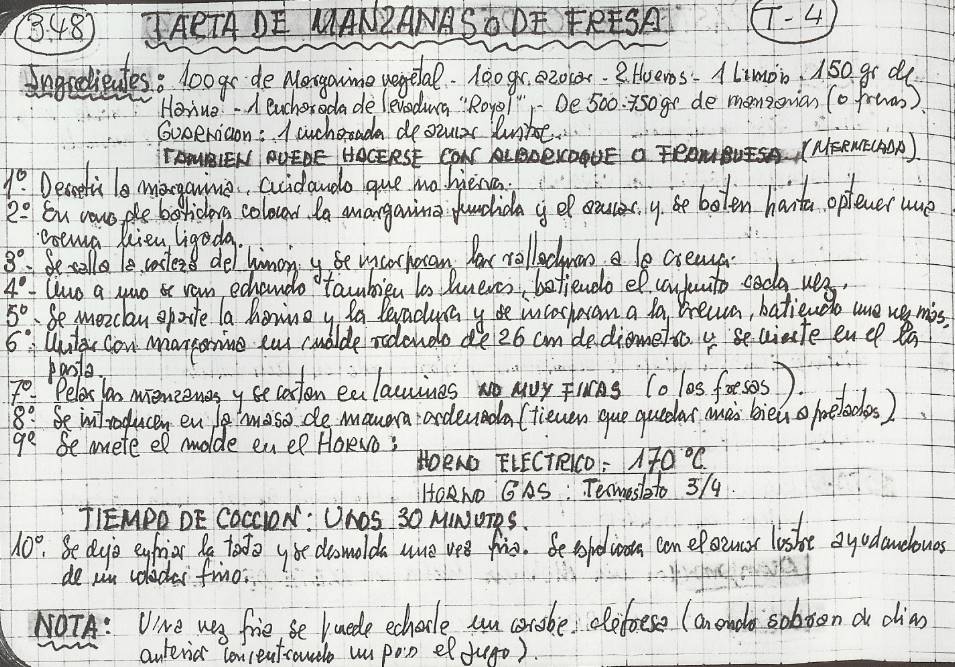 348 TARTA DE MANZANAS O DE FRESA T-4
Ingredientes: 100 gr de Margarina vegetal - 100 gr. azucar - 2 Huevos - 1 Limón. 150 gr de
Harina - 1 Cucharada de levadura "Royal" - De 500-750 gr de manzanas (o fresas)
Guarnicion: 1 cucharada de azucar lustre.
TAMBIEN PUEDE HACERSE CON ALBARICOQUE O FRAMBUESA (MERMELADA)
1º. Derretir la margarina, cuidando que no hierva.
2º- En vaso de batidora colocar la margarina fundida y el azucar y se baten hasta optener una
crema bien ligada.
3º- Se ralla la corteza del limon y se incorporan las ralladuras a la crema.
4º- Uno a uno se van echando tambien los huevos, batiendo el conjunto cada vez.
5º- Se mezclan aparte la harina y la levadura y se incorporan a la crema, batiendo una vez más.
6º Untar con margarina un molde redondo de 26 cm de diametro y se vierte en el la
pasta.
7º- Pelar las manzanas y se cortan en laminas NO MUY FINAS (o las fresas).
8º- Se introducen en la masa de manera ordenada (tienen que quedar mas bien apretadas)
9º Se mete el molde en el HORNO:
HORNO ELECTRICO: 170 ºC
HORNO GAS: Termostato 3/4.
TIEMPO DE COCCION: UNOS 30 MINUTOS.
10º. Se deja enfriar la tarta y se desmolda una vez fria. Se espolvorea con el azucar lustre ayudandonos
de un colador fino.
NOTA: Una vez fria se puede echarle un jarabe de fresa (cuando sobran de dias
anterior concentrando un poco el jugo).